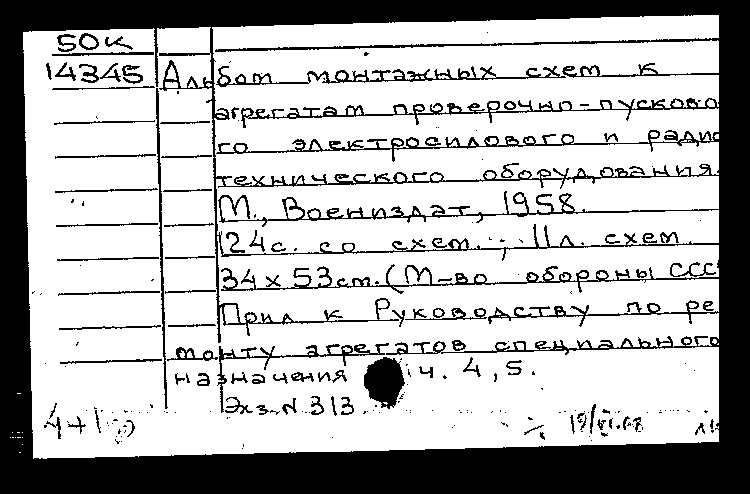 50к
14345 Альбом монтажных схем к
агрегатам проверочно-пусково
го электросилового и радио
технического оборудования.
М., Воениздат, 1958.
124с. со схем.; 11л. схем.
34х53см. (М-во обороны ССС
Прил к Руководству по ре
монту агрегатов специального
назначения ч. 4, 5.
Экз. N 313.
4+1
19/VI.68